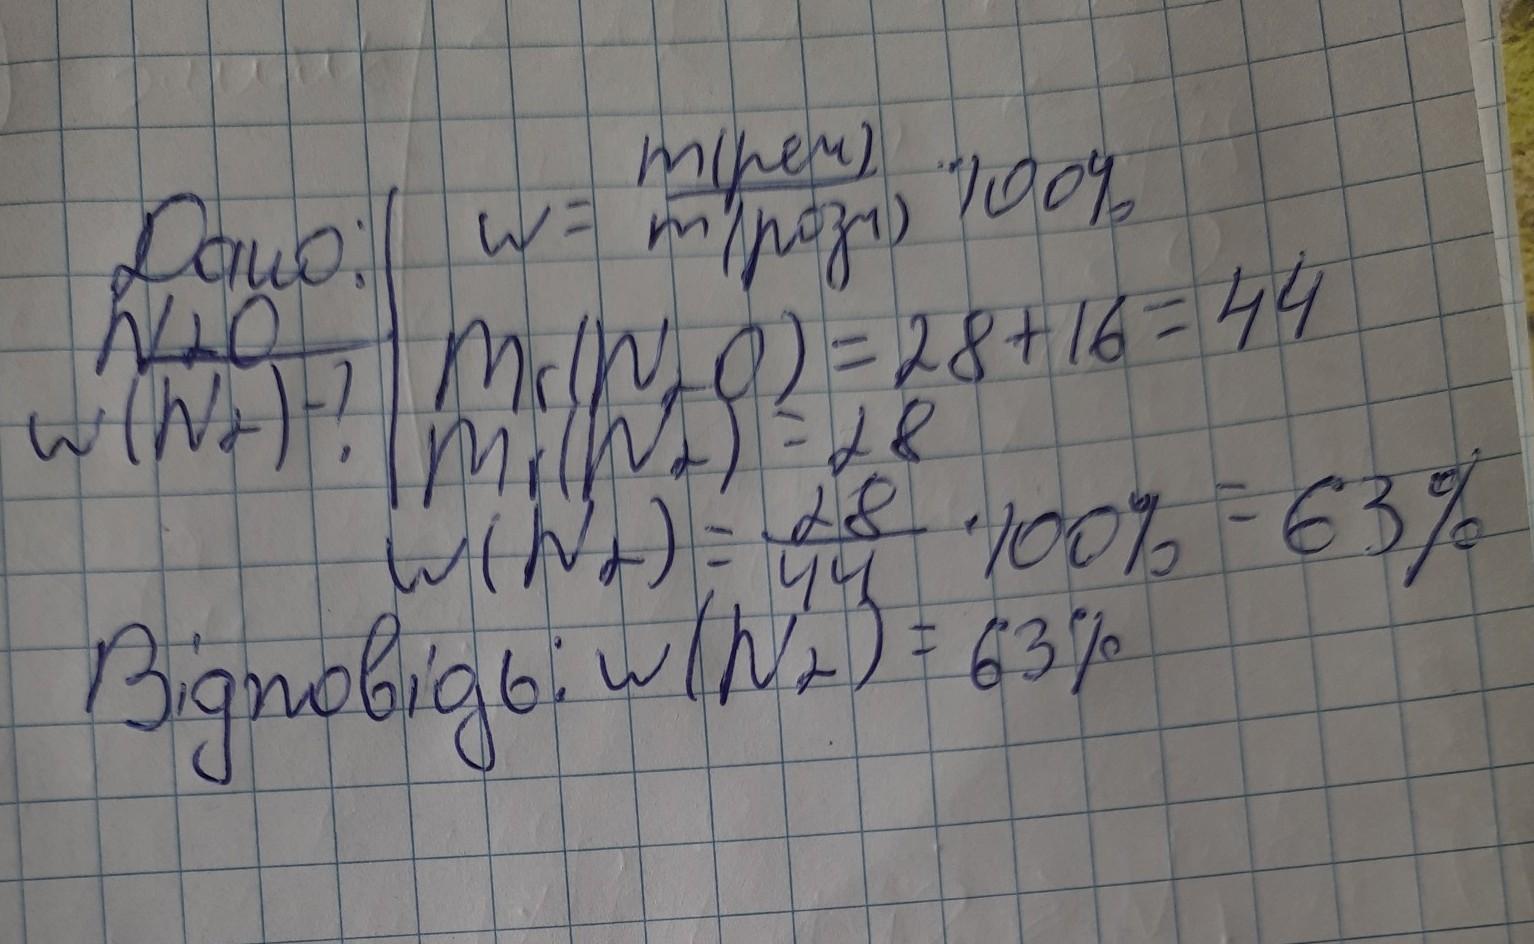 Дано:
N₂O
w(N₂)-?
w = m(реч)/m(розч) · 100%
Mr(N₂O) = 28 + 16 = 44
Mr(N₂) = 28
w(N₂) = 28/44 · 100% = 63%
Відповідь: w(N₂) = 63%